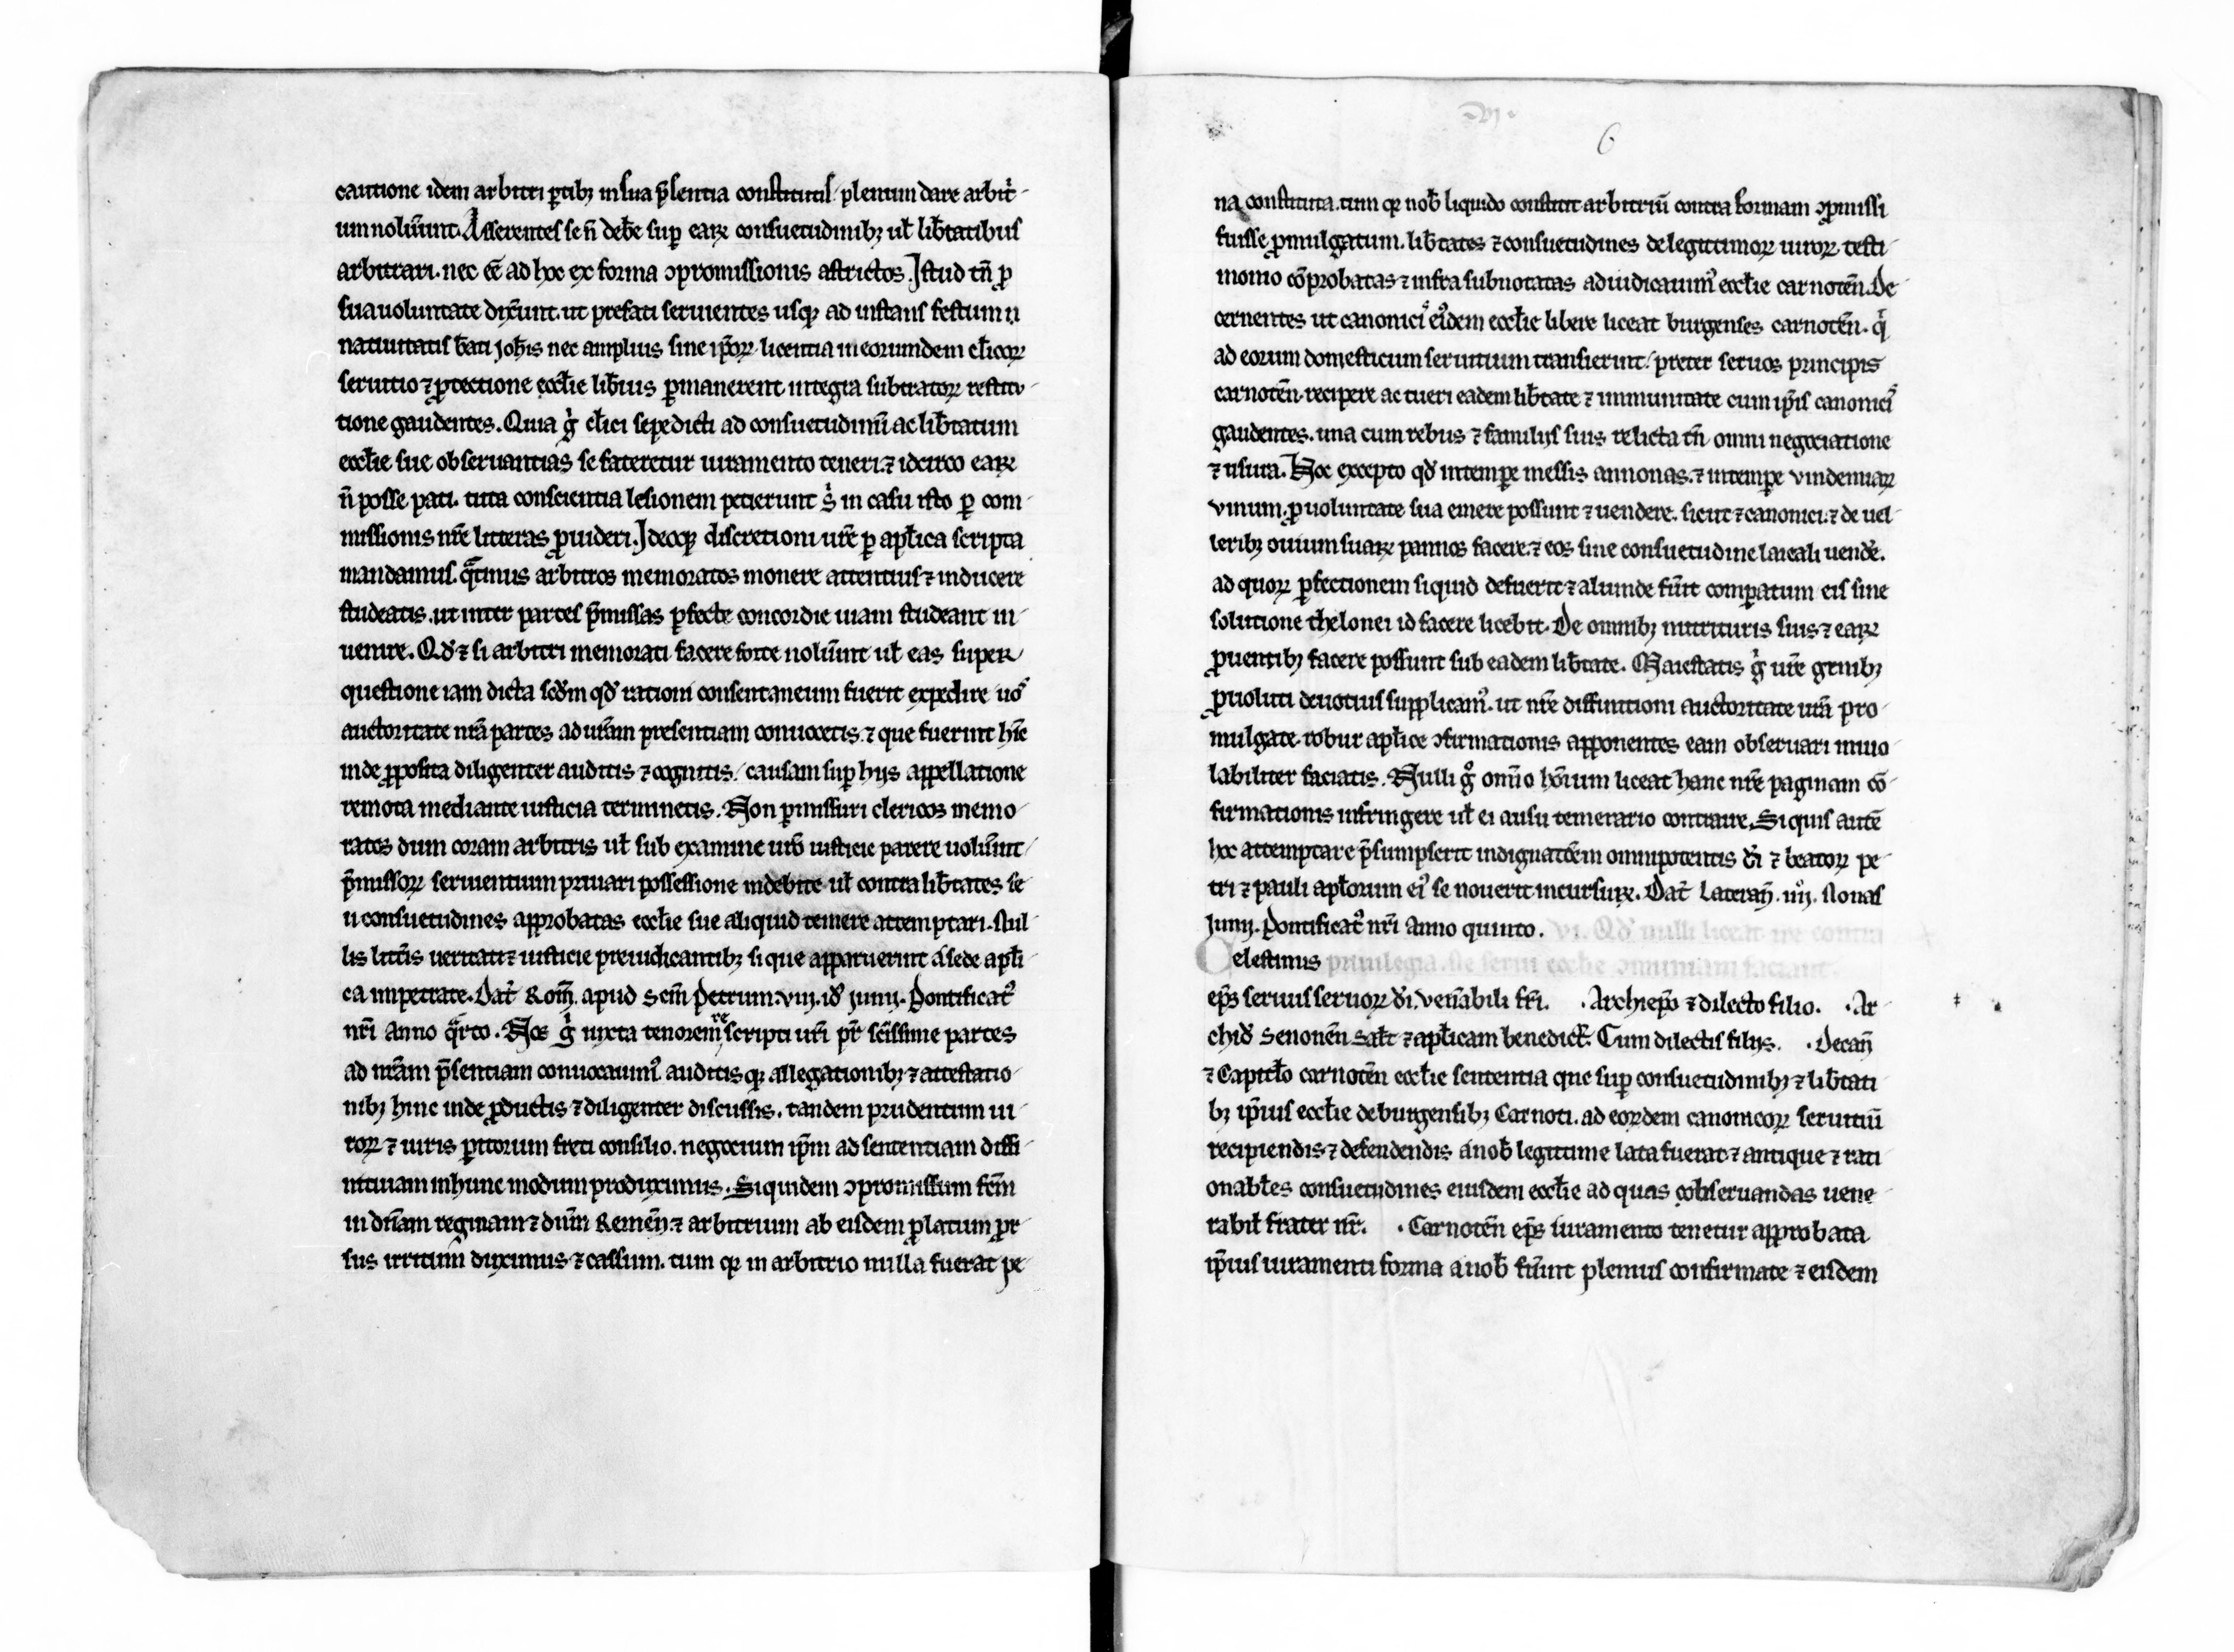 cautione idem arbitri ꝑtibꝫ in sua p̄sentia constitutis plenum dare arbit̓
um noluerunt. Asserentes se n̄ deb̄e sup eaꝝ consuetudinibꝫ ul̄ lib̄tatibus
arbitrari. nec eē ad hoc ex forma ɔpromissionis astrictos. Istud tn̄ ꝓ
sua uoluntate dixerunt. ut prefati seruientes usqꝫ ad instans festum
natiuitatis b̄ati Joh̄is nec amplius sine ip̄oꝝ licentia in eorumdem cl̄icoꝝ
seruitio ⁊ ꝓtectione eccl̄ie lib̄ius ꝑmanerent integra subtractoꝝ restitu
tione gaudentes. Quia g̓ cl̄ici sepedicti ad consuetudinū ac lib̄tatum
eccl̄ie sue obseruantias se fateretur iuramento teneri. ⁊ idcirco eaꝝ
n̄ posse pati. tuta conscientia lesionem petierunt s̓ in casu isto ꝑ com
missionis nr̄e litteras ꝓuideri. Ideoqꝫ discretioni ur̄e ꝑ apl̄ica scripta
mandamus. qͣtinus arbitros memoratos monere attentius ⁊ inducere
studeatis. ut inter partes p̄missas ꝑfecte concordie uiam studeant in
uenire. Qd̓ ⁊ si arbitri memorati facere forte nolūint ul̄ eas super
questione iam dicta sed̄m qd̓ rationi consentaneum fuerit expedire uoˢ
auctoritate nr̄a partes ad ur̄am presentiam conuocetis. ⁊ que fuerint hīc
inde ꝓposita diligenter auditis ⁊ cognitis. causam sup hijs appellatione
remota mediante iusticia terminetis. Non ꝑmissuri clericos memo
ratos dum coram arbitris ul̄ sub examine ur̄o iusticie parere uolūint
p̄missoꝝ seruientum priuari possessione indebite ul̄ contra lib̄tates se
u consuetudines approbatas eccl̄ie sue aliquid temere attemptari. Nul
lis litt̄is ueritati ⁊ iusticie preiudicantibꝫ si que apparuerint a sede apl̄i
ca impetrate. Dat̄ Rom̄. apud Scm̄ Petrum. viij. id̓ Junij. Pontificat̓
nr̄i anno qͣrto. Nos g̓ iuxta tenorem rescripti ur̄i pr̄ sc̄issime partes
ad nr̄am p̄sentiam conuocauim̓ auditisqꝫ allegationibꝫ ⁊ attestatio
nibꝫ hinc inde ꝓductis ⁊ diligenter discussis. tandem prudentum ui
roꝝ ⁊ iuris ꝑitorum freti consilio. negocium ip̄m ad sententiam diffi
nitiuam in hunc modum produximus. Siquidem ɔpromissum fc̄m
in dn̄am reginam ⁊ dn̄m Remen̄. ⁊ arbitrium ab eisdem ꝓlatum ꝓr
sus irritum diximus ⁊ cassum. tum qꝫ in arbitrio nulla fuerat pe
6
na constituta. tum qꝫ nob̄ liquido constitit arbitriū contra formam ɔpmissi
fuisse ꝓmulgatum. lib̄tates ⁊ consuetudines de legittimoꝝ uiroꝝ testi
monio cōprobatas ⁊ infra subnotatas adiudicauim̓ eccl̄ie carnoten̄. De
cernentes ut canonicis ei̓dem eccl̄ie libere liceat burgenses carnoten̄. qͥ
ad eorum domesticum seruitium transierint. preter seruos principis
carnoten̄. recipere ac tueri eadem lib̄tate ⁊ immunitate cum ip̄is canoniciˢ
gaudentes. una cum rebus ⁊ familijs suis relicta tn̄ omni negociatione
⁊ usura. Hoc excepto qd̓ in tempe messis annonas. ⁊ in tempe vindemiaꝝ
vinum. ꝓ uoluntate sua emere possunt ⁊ uendere. sicut ⁊ canonici. ⁊ de uel
leribꝫ ouium suaꝝ pannos facere. ⁊ eos sine consuetudine laicali uende.
ad quoꝝ ꝑfectionem si quid defuerit ⁊ aliunde fūit comꝑatum eis sine
solutione thelonei id facere licebit. De omnibꝫ nutrituris suis ⁊ eaꝝ
ꝓuentibꝫ facere possunt sub eadem lib̄tate. Maiestatis g̓ ur̄e genibꝫ
ꝓuoluti deuotius supplicam̓. ut nr̄e diffinitioni auctoritate ur̄a pro
mulgate. robur apl̄ice ɔfirmationis apponentes eam obseruari inuio
labiliter faciatis. Nulli g̊ omīo hoīum liceat hanc nr̄e paginam cō
firmationis infringere ul̄ ei ausu temerario contraire. Si quis autē
hoc attemptare p̄sumpserit indignatōem omnipotentis dī ⁊ beatoꝝ pe
tri ⁊ pauli apl̄orum ei̓ se nouerit incursuꝝ. Dat̄ Lateran̄. iiij. Nonas
Junij. Pontificat̓ nr̄i anno quinto. vi. Qd̓ nulli liceat ire contra
Celestinus priuilegia. ne serui eccl̄ie ɔmuniam faciant.
ep̄s seruus seruoꝝ dī. ven̄abili fr̄i. . Archiep̄o ⁊ dilecto filio. . Ar
chid̓ Senonen̄ Salt̄ ⁊ apl̄icam benedict̄. Cum dilectis filijs. . Decan̄
⁊ Capitl̄o carnoten̄ eccl̄ie sententia que sup consuetudinibꝫ ⁊ lib̄tati
bꝫ ip̄ius eccl̄ie de burgensibꝫ Carnoti. ad eordem canonicoꝝ seruitiū
recipiendis ⁊ defendendis a nob̄ legittime lata fuerat ⁊ antique ⁊ rati
onabl̄es consuetudines eiusdem eccl̄ie ad quas obseruandas uene
rabil̄ frater nr̄. . Carnoten̄ ep̄s iuramento tenetur approbata
ip̄ius iuramenti forma a nob̄ fūint plenius confirmate ⁊ eisdem